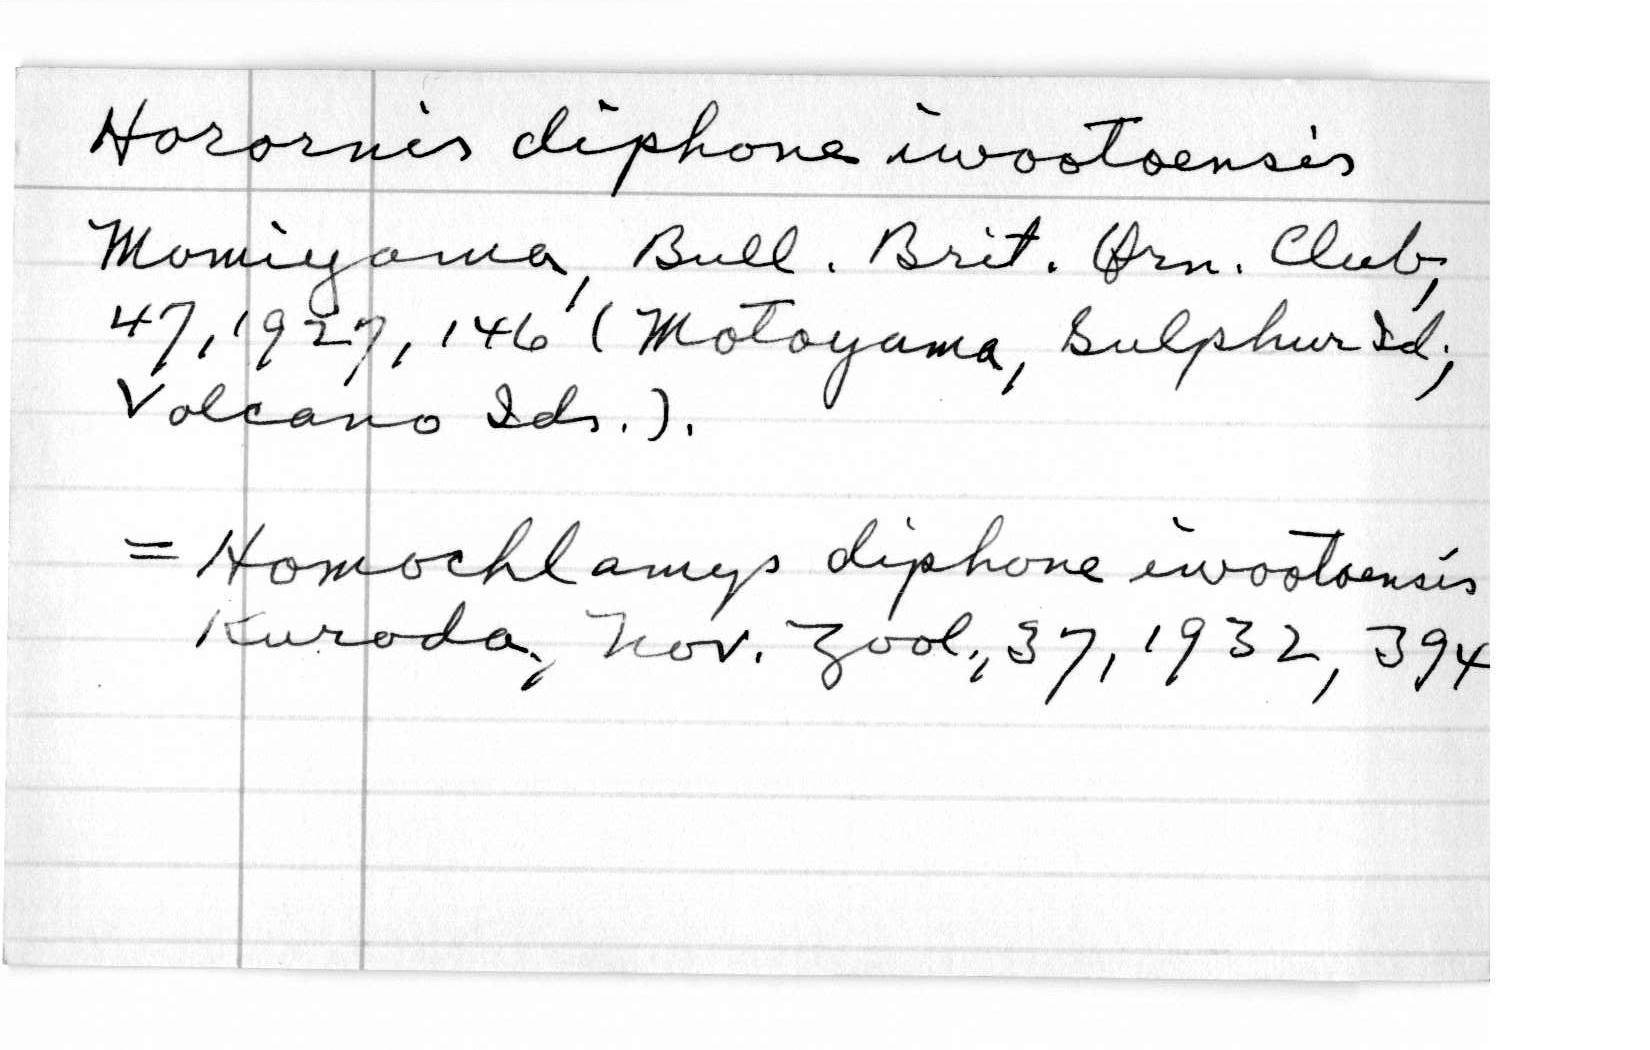 Horornis diphone iwootoensis
Momiyama, Bull. Brit. Orn. Club,
47, 1927, 146 (Motoyama, Sulphur Id.,
Volcano Ids.).
= Homochlamys diphone iwootoensis
Kuroda, Nov. Zool., 37, 1932, 394